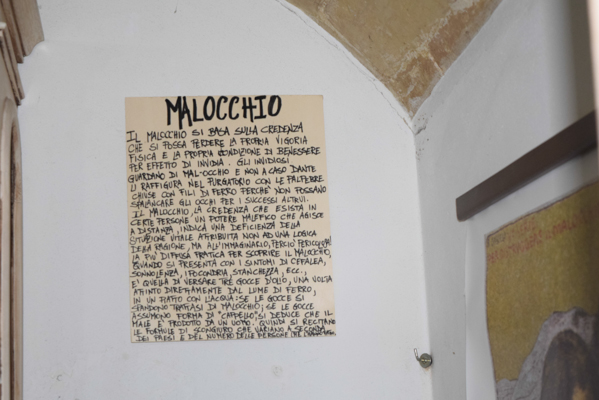 MALOCCHIO
IL MALOCCHIO SI BASA SULLA CREDENZA
CHE SI POSSA PERDERE LA PROPRIA VIGORIA
FISICA E LA PROPRIA CONDIZIONE DI BENESSERE
PER EFFETTO DI INVIDIA. GLI INVIDIOSI
GUARDANO DI MAL-OCCHIO E NON A CASO DANTE
LI RAFFIGURA NEL PURGATORIO CON LE PALPEBRE
CHIUSE CON FILI DI FERRO PERCHE' NON POSSANO
SPALANCARE GLI OCCHI PER I SUCCESSI ALTRUI.
IL MALOCCHIO, LA CREDENZA CHE ESISTA IN
CERTE PERSONE UN POTERE MALEFICO CHE AGISCE
A DISTANZA, INDICA UNA DEFICIENZA DELLA
SITUAZIONE VITALE ATTRIBUITA NON AD UNA LOGICA
DELLA RAGIONE, MA ALL'IMMAGINARIO, PERCIO'
LA PIU' DIFFUSA PRATICA PER SCOPRIRE IL MALOCCHIO,
QUANDO SI PRESENTA CON I SINTOMI DI CEFALEA,
SONNOLENZA, IPOCONDRIA, STANCHEZZA, ECC.,
E' QUELLA DI VERSARE TRE GOCCE D'OLIO, UNA VOLTA
ATTINTO DIRETTAMENTE DAL LUME DI FERRO,
IN UN PIATTO CON L'ACQUA: SE LE GOCCE SI
SPANDONO TRATTASI DI MALOCCHIO; SE LE GOCCE
ASSUMONO FORMA DI "CAPPELLO", SI DEDUCE CHE IL
MALE E' PRODOTTO DA UN UOMO. QUINDI SI RECITANO
LE FORMULE DI SCONGIURO CHE VARIANO A SECONDA
DEI PAESI E DEL NUMERO DELLE PERSONE CHE